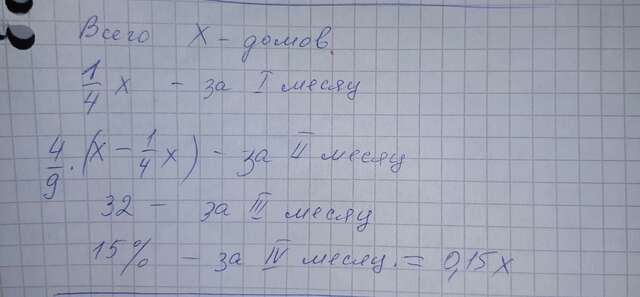 Всего X - домов.
1/4 x - за I месяц
4/9 · (x - 1/4 x) - за II месяц
32 - за III месяц
15% - за IV месяц. = 0,15x